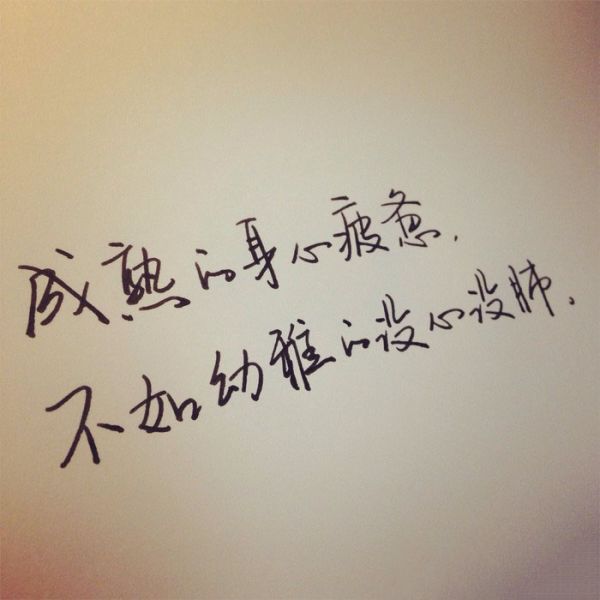 成熟的身心疲惫.
不如幼稚的没心没肺.